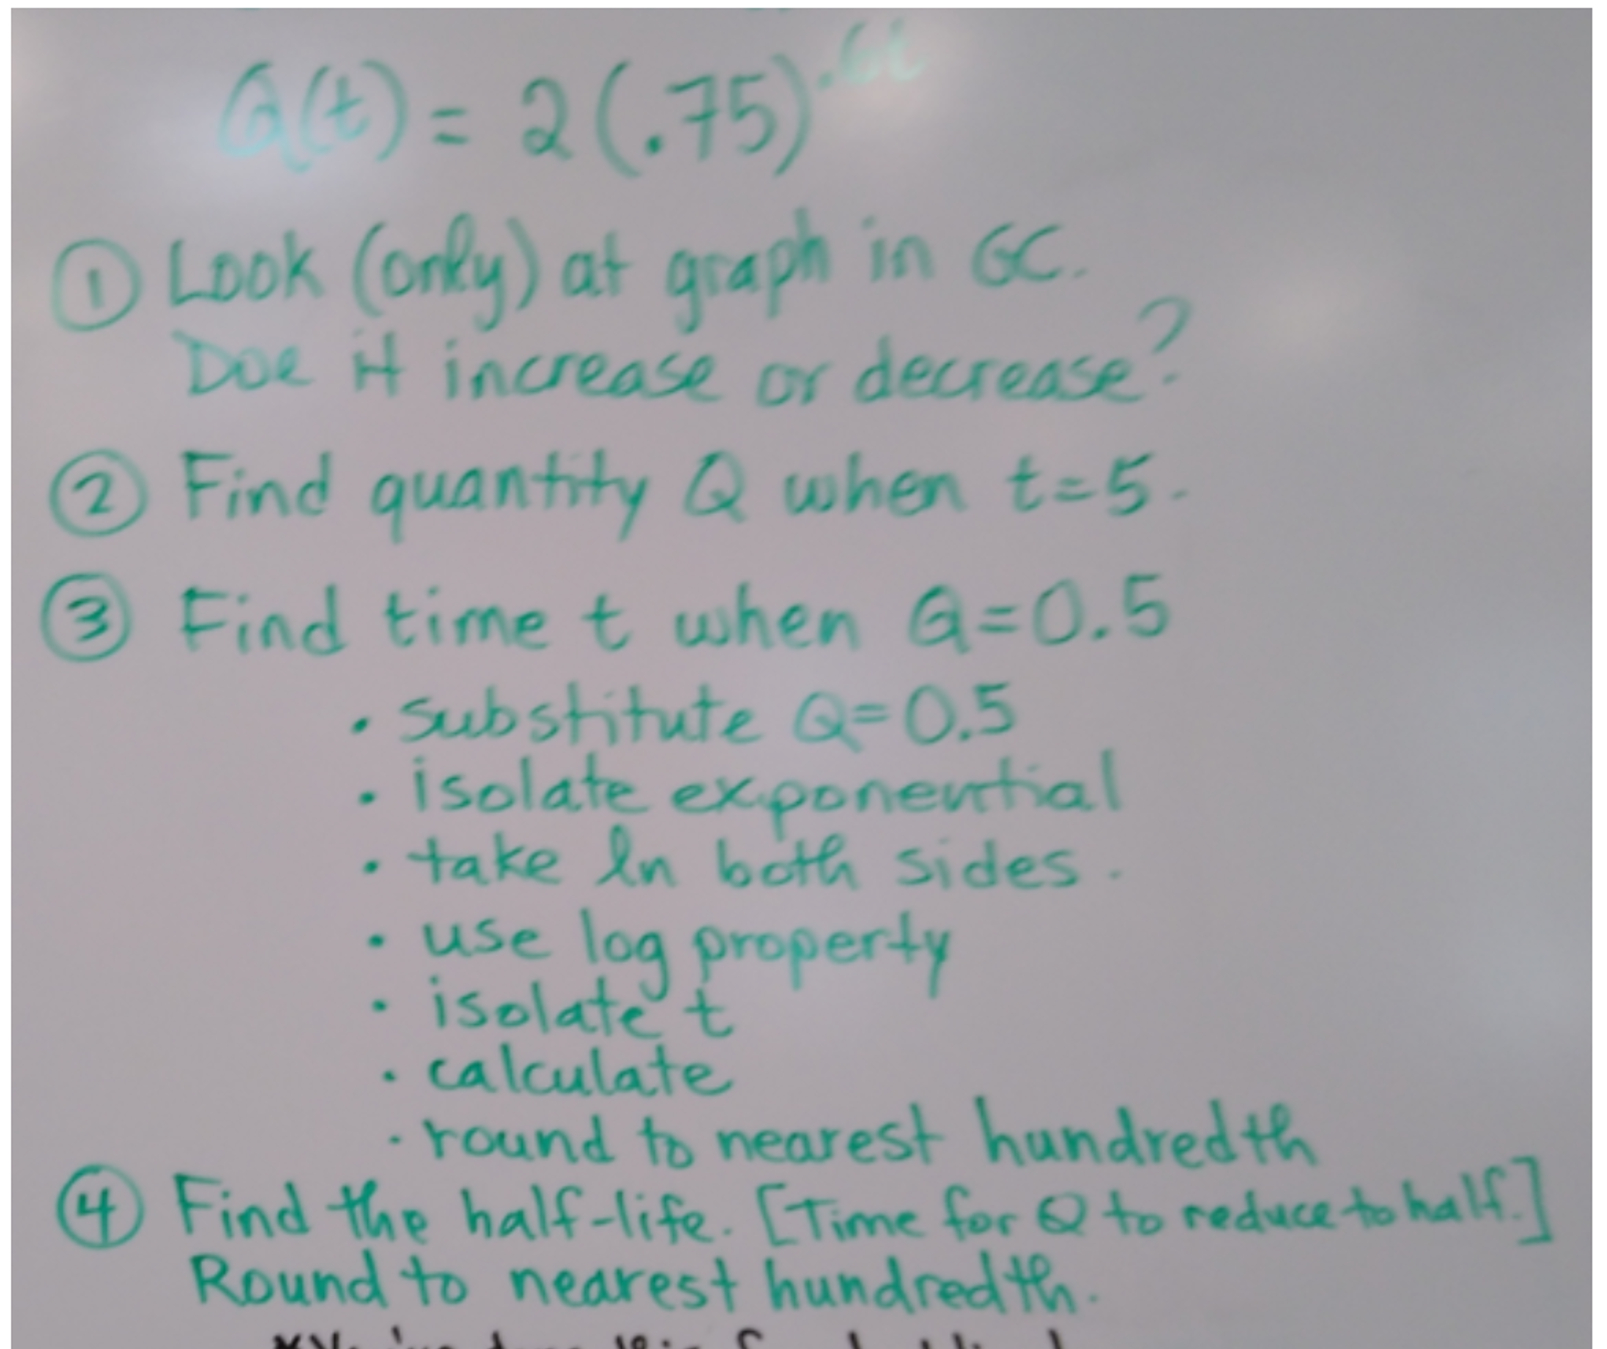 Q(t) = 2(.75)^.6t
① Look (only) at graph in GC.
Doe it increase or decrease?
② Find quantity Q when t=5.
③ Find time t when Q=0.5
• substitute Q=0.5
• isolate exponential
• take ln both sides.
• use log property
• isolate t
• calculate
• round to nearest hundredth
④ Find the half-life. [Time for Q to reduce to half.]
Round to nearest hundredth.